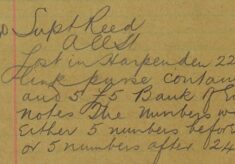 Supt Reed
Lost in Harpenden 22
purse contain
and 5 £5 Bank of
notes The numbers w
Either 5 numbers befor
or 5 numbers after 24